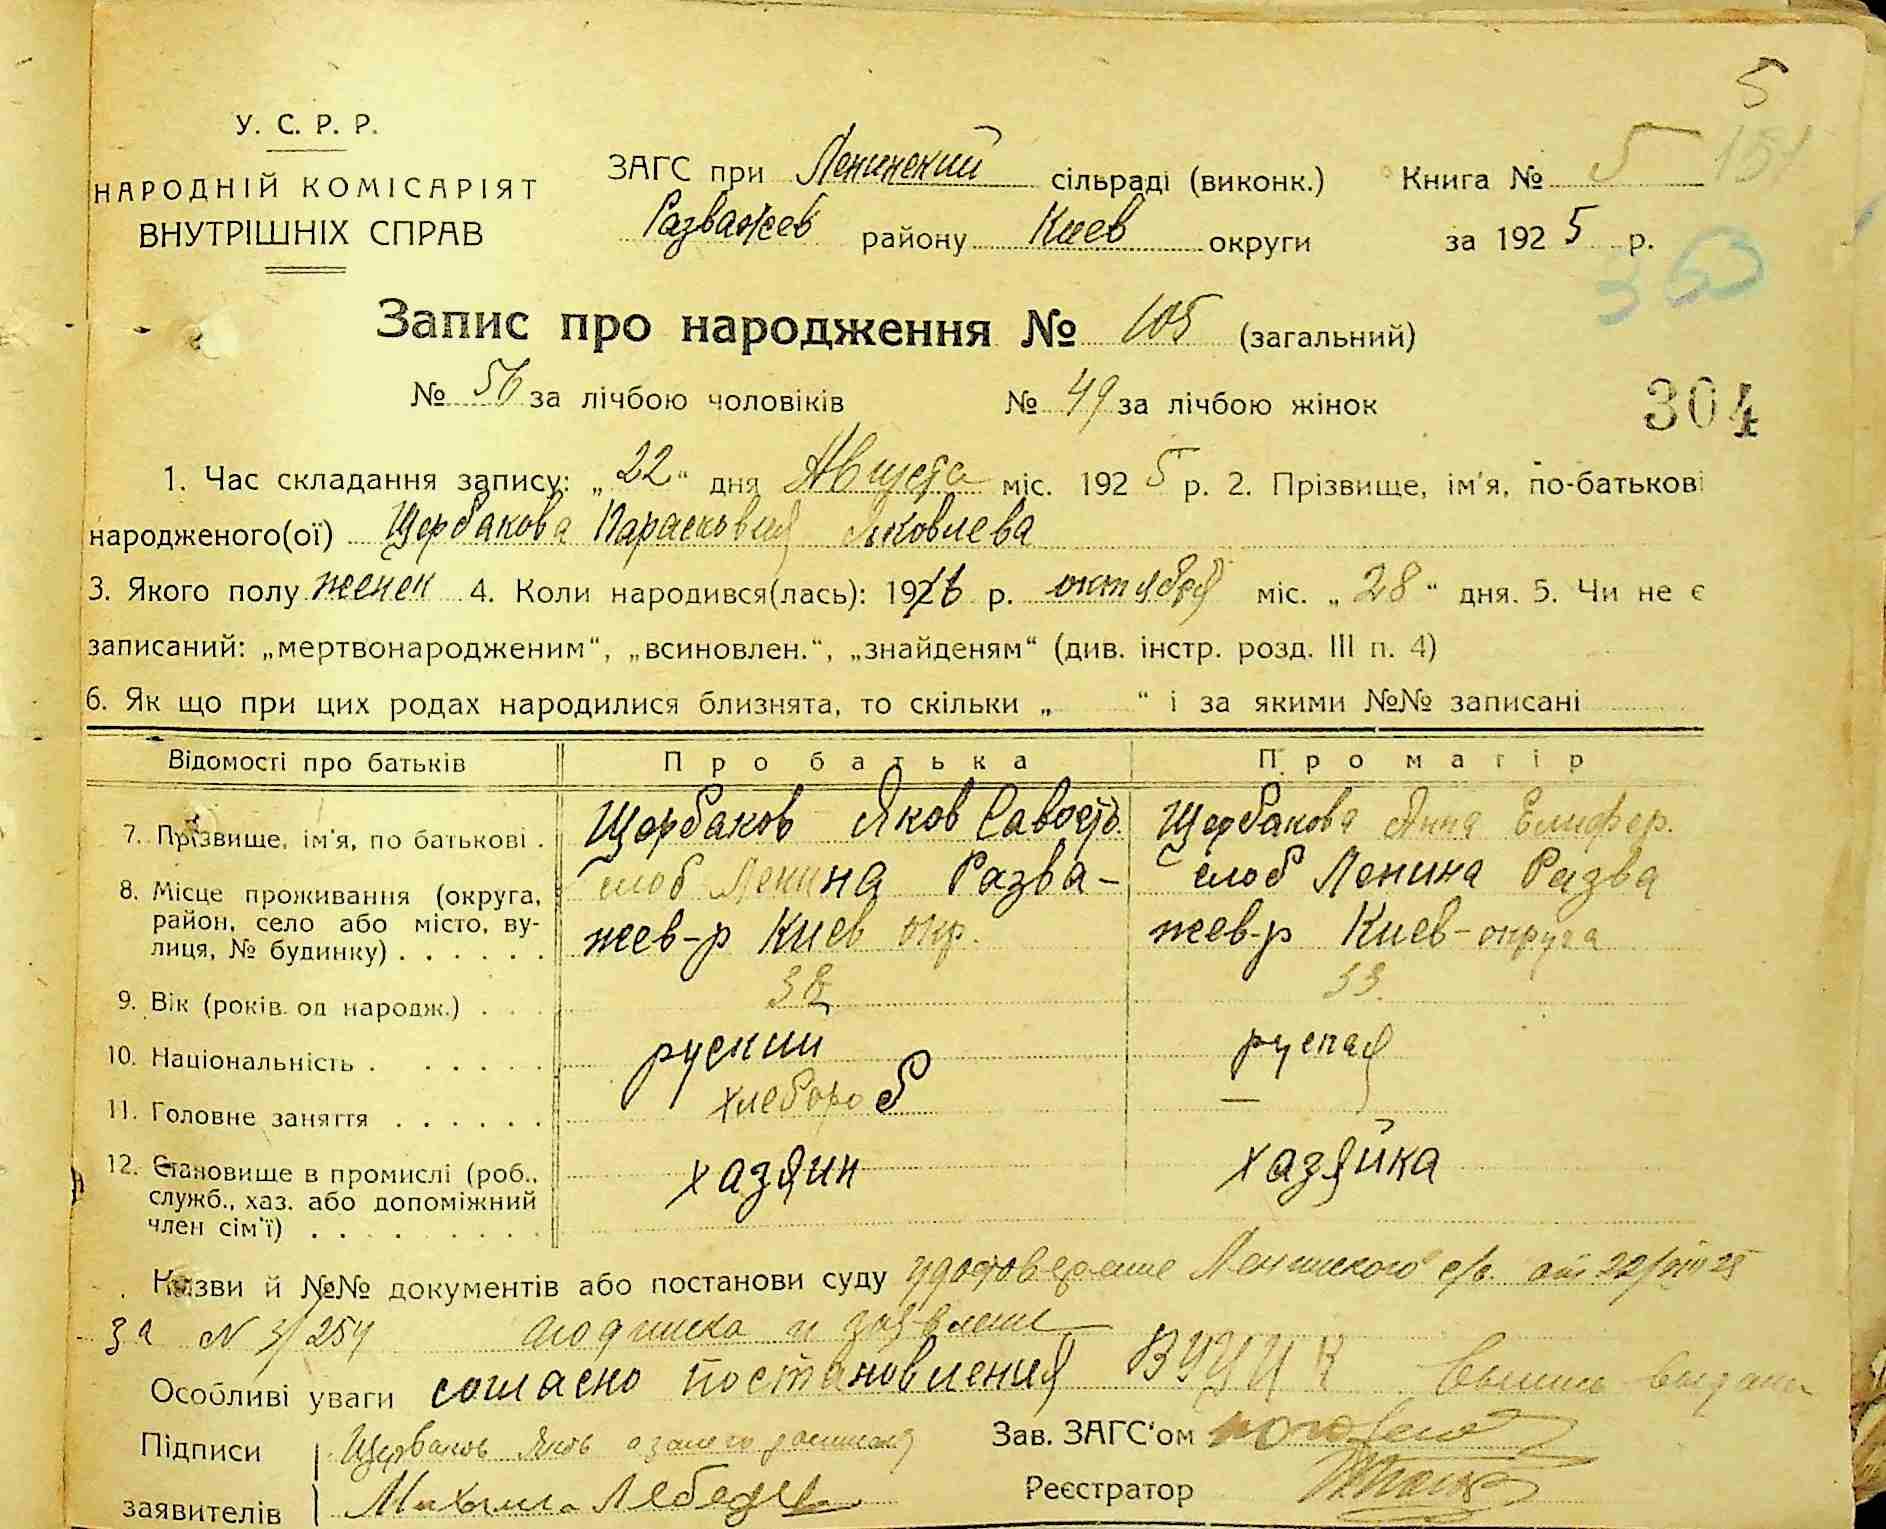 5
У. С. Р. Р.
НАРОДНІЙ КОМІСАРІЯТ
ВНУТРІШНІХ СПРАВ
ЗАГС при Ленинский сільраді (виконк.) Книга № 5 151
Разважев району Киев округи за 1925 р.
353
Запис про народження № 105 (загальний)
№ 56 за лічбою чоловіків № 49 за лічбою жінок
304
1. Час складання запису: „22“ дня Августа міс. 1925 р. 2. Прізвище, ім'я, по-батькові
народженого(ої) Щербакова Парасковия Яковлева
3. Якого полу женск 4. Коли народився(лась): 19 р. октября міс. „28“ дня. 5. Чи не є
записаний: „мертвонародженим“, „всиновлен.“, „знайденям“ (див. інстр. розд. III п. 4)
6. Як що при цих родах народилися близнята, то скільки „ “ і за якими №№ записані
Відомості про батьків Про батька Про матір
7. Прізвище, ім'я, по батькові . Щербаков Яков Савость. Щербакова Анна Елифер.
8. Місце проживання (округа, слоб Ленина Разва- слоб Ленина Разва
район, село або місто, ву-
лиця, № будинку) . . . . . . жев-р Киев окр. жев-р Киев-округа
9. Вік (років од народж.) . . . 33.
10. Національність . . . . . . руский руская
11. Головне заняття . . . . . . хлебороб —
12. Становище в промислі (роб., хазяин хазяйка
служб., хаз. або допоміжний
член сім'ї) . . . . . . . .
Назви й №№ документів або постанови суду удостоверение Ленинского с/с. от 22/VIII 25
за N 3/254 подписка и заявление
Особливі уваги согласно постановления ВУЦИК выпись выдана
Підписи Щербаков Яков Зав. ЗАГС'ом
заявителів Михаил Лебедев Реєстратор